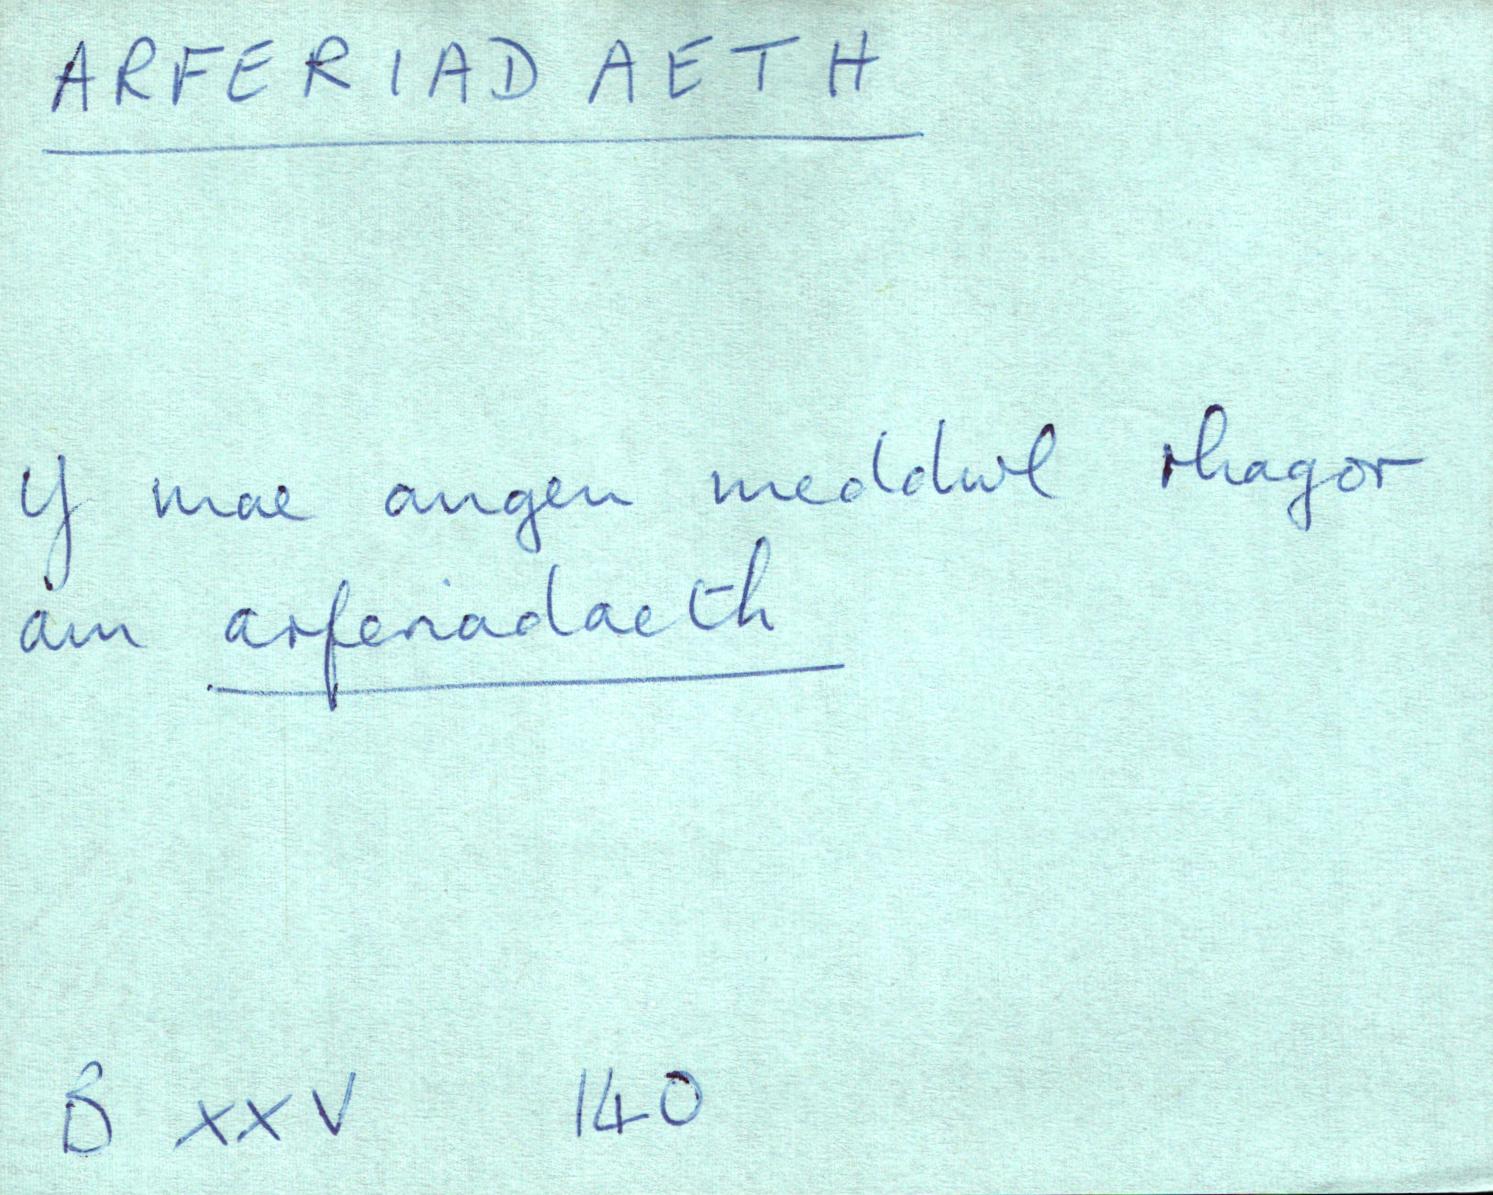 ARFERIADAETH
Y mae angen meddwl rhagor
am arferiadaeth
B XXV 140